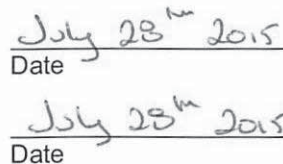 July 28th 2015
Date
July 28th 2015
Date